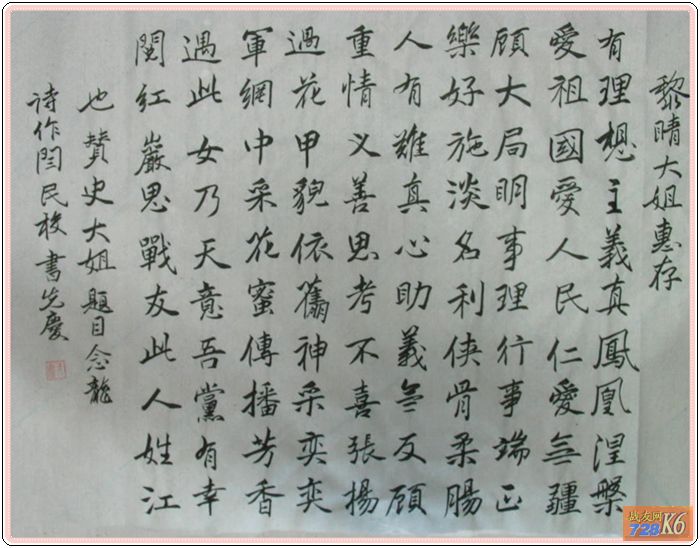 黎晴大姐惠存
有理想主義真鳳凰涅槃
愛祖國愛人民仁愛無疆
顾大局明事理行事端正
樂好施淡名利侠骨柔腸
人有難真心助義無反顾
重情义善思考不喜張揚
過花甲貌依舊神采奕奕
軍網中采花蜜傳播芳香
遇此女乃天意吾黨有幸
閱紅巖思戰友此人姓江
也赞史大姐题目念龍
诗作闫民校書先慶
战友网
728K6